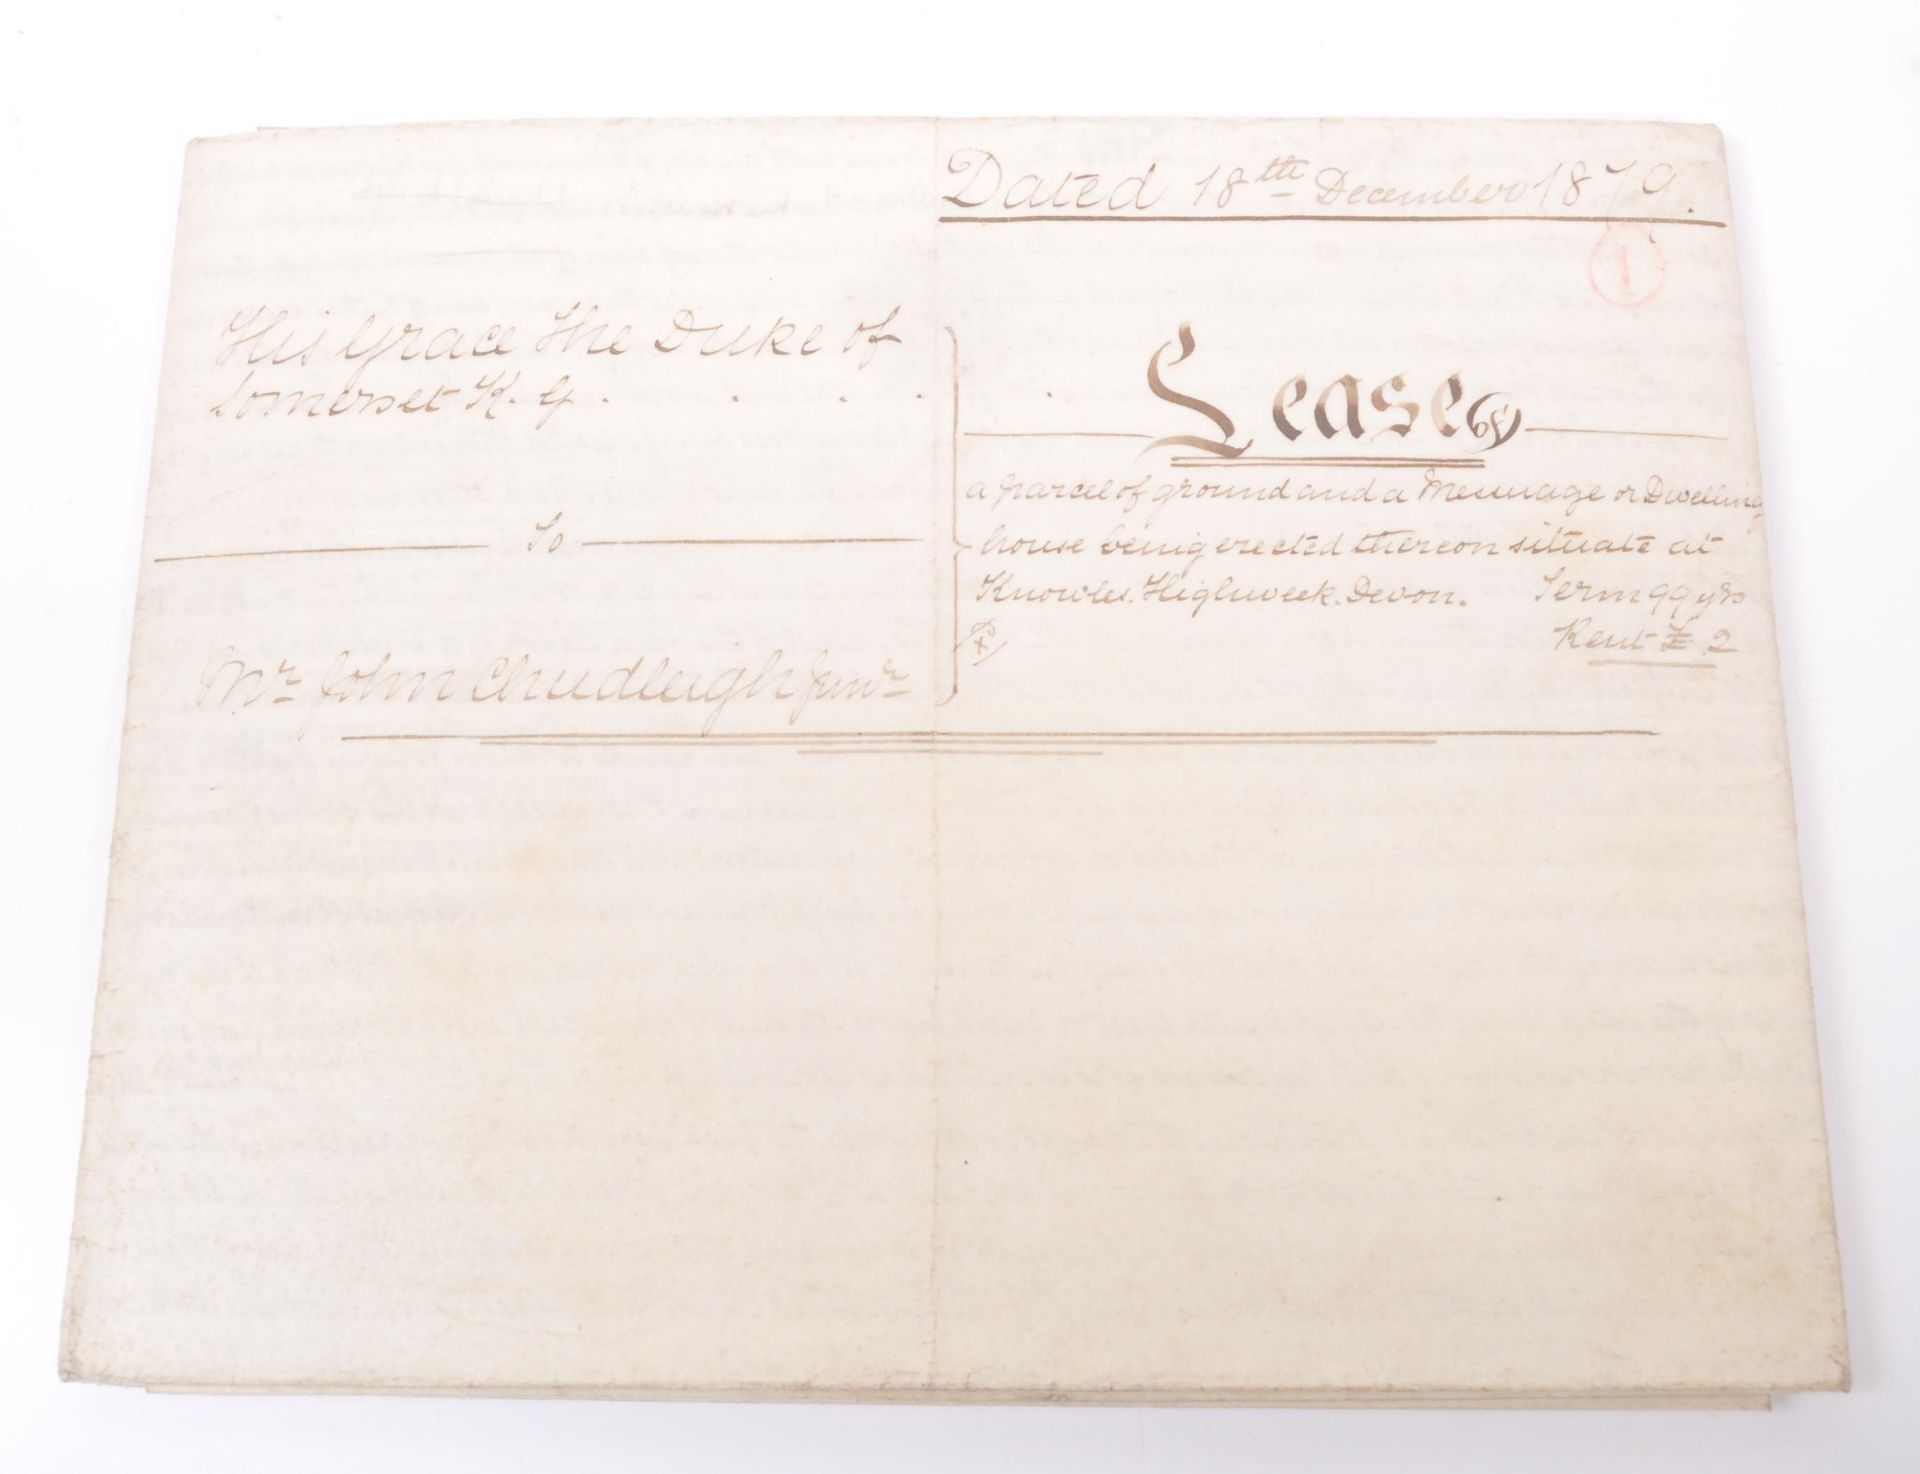 Dated 18th December 1879.
1
His Grace the Duke of
Somerset K. G. . . . .
To
Mr. John Chudleigh Junr.
Lease of
a parcel of ground and a Messuage or Dwelling
house being erected thereon situate at
Knowles. Highweek. Devon. Term 99 yrs
Rent £ 2